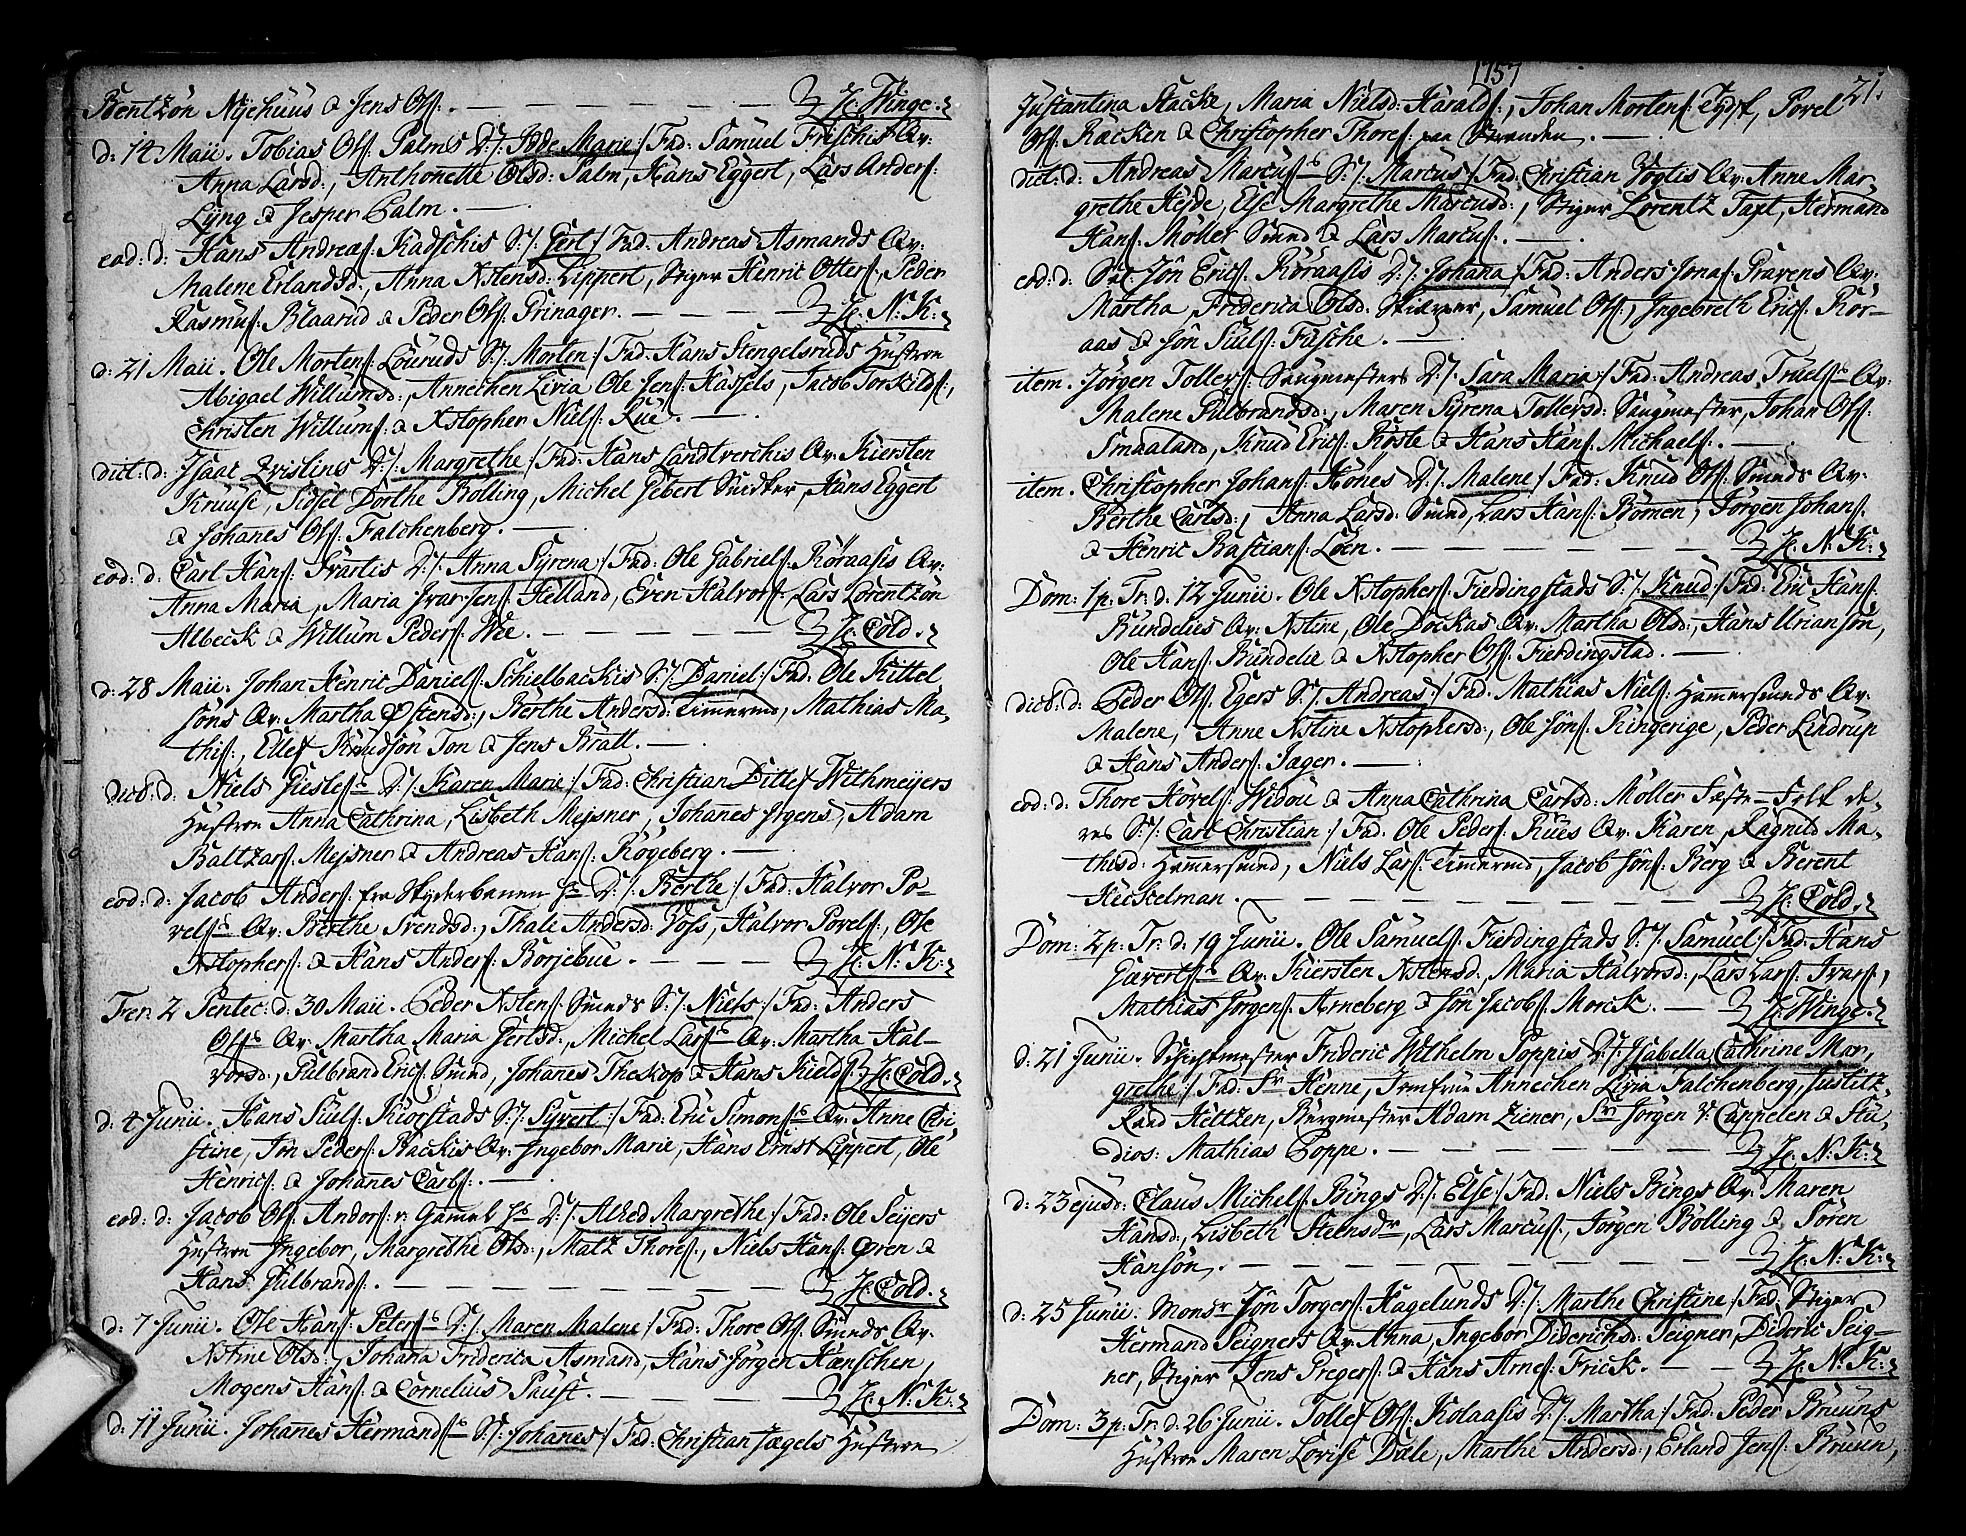 Bentzön Nyhuus & Jens Ols: — — — — — Hr: Winge.
d: 14 Maii. Tobias Ols: Palms D:/: Pode Marie:/ Fad: Samuel Frischis Qv:
Anna Larsd:, Anthonette Olsd: Palm, Hans Eggert, Lars Anders:
Lÿng & Jesper Palm. —
eod: d: Hans Andreas: Kadschis S:/: Gert:/ Fad: Andreas Asmands Qv:
Malene Erlandsd:, Anna Xstensd: Lippert, Stiger Henric Otters:, Peder
Rasmus: Blaarud & Peder Ols: Prinager. — — — Hr: N: K:
d: 21 Maii. Ole Mortens: Loùruds S:/: Morten:/ Fad: Hans Stengelsruds Hustroe
Abigael Willumsd:, Annechen Livia Ole Jens: Hassels, Jacob Torkilds:,
Christen Willums: & Xstopher Niels: Lue. —
dict: d: Isaac Zvislines D:/: Margrethe:/ Fad: Hans Landtverchis Qv: Kiersten
Kruuse, Sidsel Dorthe Bolling, Michel Gebert Snidker, Hans Eggert
& Johanes Ols: Falchenberg. —
eod: d: Carl Hans: Svartis D:/: Anna Syrena:/ Fad: Ole Gabriels: Röraasis Qv:
Anna Maria, Maria Ivar Jens: Helland, Even Halvors:, Lars Lorentzön
Albeck & Willum Peders: Wee. — — — — Hr: Cold.
d: 28 Maii. Johan Henric Daniels: Schielbackis S:/: Daniel:/ Fad: Ole Kittel
söns Qv: Martha Östensd:, Berthe Andersd: Timermd, Mathias Ma-
this:, Ellef Knudsön Ton & Jens Bratt. —
dict: d: Niels Giesles: D:/: Karen Marie:/ Fad: Christian Ditlef Withmeyers
Hustroe Anna Cathrina, Lisbeth Mejsner, Johanes Jrgens, Adam
Baltzars: Mejsner & Andreas Hans: Rögeberg. —
eod: d: Jacob Anders: fra Skyderbanen Hs D:/: Berthe:/ Fad: Halvor Po-
vels: Qv: Berthe Svendsd:, Thale Andersd: Voss, Halvor Povels:, Ole
Xstophers: & Hans Anders: Borjebue. — — — Hr: N: K:
Fer: 2 Pentec: d: 30 Maii. Peder Xstens: Smeds S:/: Niels:/ Fad: Anders
Ols: Qv: Martha Maria Gertsd:, Michel Lars: Qv: Martha Hal-
vorsd:, Gulbrand Erics: Smed, Johanes Theskop & Hans Kields: Hr: Cold.
d: 4 Junii. Hans Siuls: Kiorstads S:/: Syvert:/ Fad: Eric Simons: Qv: Anne Chri
stine, Jon Peders: Backis Qv: Ingebor Marie, Hans Ernst Lippert, Ole
Henrics: & Johanes Carls:. —
eod: d: Jacob Ols: Anders: v: Gamel Hs D:/: Alhed Margrethe:/ Fad: Ole Seyers
Hustroe Ingebor, Margrethe Olsd:, Matz Thores:, Niels Hans: Gren &
Hans Gulbrands:. — — — — — Hr: Cold.
d: 7 Junii. Ole Hans: Peters: D:/: Maren Malene:/ Fad: Thore Ols: Smeds Qv:
Xstine Olsd:, Johana Friderica Asmand, Hans Jörgen Hænschen,
Mogens Hans: & Cornelius Paust. — — — Hr: N: K:
d: 11 Junii. Johannes Hermands: S:/: Johanes:/ Fad: Christian Jægels Hustroe
1757
21.
Justantina Stacke, Maria Nielsd: Haralds:, Johan Mortens: Tydsk, Povel
Ols: Racken & Christopher Thores: paa Stranden. —
dict: d: Andreas Marcus: S:/: Marcus:/ Fad: Christian Vogtis Qv: Anne Mar-
grethe Heyde, Else Margrethe Marcusd:, Stiger Lorentz Taxt, Hermand
Hans: Möller Smed & Lars Marcus:. —
eod: d: Sal: Jön Erics: Röraasis D:/: Johana:/ Fad: Anders Jonas: Pravens Qv:
Martha, Friderica Olsd: Skiærver, Samuel Ols:, Ingebreth Erics: Rör-
aas & Jön Siuls: Fusche. —
item. Jörgen Tollers: Saugmesters D:/: Sara Maria:/ Fad: Andreas Truels: Qv:
Malene Gulbrandsd:, Maren Syrena Tollersd: Saugmester, Johan Ols:
Smaaland, Knud Erics: Kiste & Hans Hans: Michaels:. —
item. Christopher Johans: Hönes D:/: Malene:/ Fad: Knud Ols: Smeds Qv:
Berthe Carlsd:, Anna Larsd: Smed, Lars Hans: Bömen, Jörgen Johans:
& Henric Bastians: Löen. — — — — — Hr: N: K:
Dom: 1 p: Tr: d: 12 Junii. Ole Xstophers: Fierdingstads S:/: Knud:/ Fad: Eric Hans:
Bundelies Qv: Xstine, Ole Dockas Qv: Martha Olsd:, Hans Uriansön,
Ole Hans: Bundelie & Xstopher Ols: Fierdingstad. —
dict: d: Peder Ols: Egers S:/: Andreas:/ Fad: Mathias Niels: Hamersmeds Qv:
Malene, Anne Xstine Xstophersd:, Ole Jöns: Ringerige, Peder Lindrup
& Hans Anders: Jæger. —
eod: d: Thore Hövels: Widou & Anna Cathrina Carlsd: Möller Fæste-Folk de-
res S:/: Carl Christian:/ Fad: Ole Peders: Ruus Qv: Karen, Ragnild Ma-
thisd: Hamersmed, Niels Lars: Timermd, Jacob Jöns: Berg & Berent
Heckelman. — — — — — — Hr: Cold.
Dom: 2 p: Tr: d: 19 Junii. Ole Samuels: Fierdingstads S:/: Samuel:/ Fad: Hans
Gæverts: Qv: Kiersten Xstensd:, Maria Halvorsd:, Lars Lars: Ivars:,
Mathias Jörgens: Arneberg & Jön Jacobs: Morck. — Hr: Winge.
d: 21 Junii. Schichtmester Frideric Wilhelm Poppis D:/: Isabella Cathrine Mar-
grethe:/ Fad: Sr Henne, Jomfrue Annechen Livia Falchenberg, Justitz
Raad Heltzen, Bergmester Adam Ziener, Sr Jörgen v: Cappelen & Stu-
dios: Mathias Poppe. — — — — — Hr: N: K:
d: 23 ejusd: Claus Michels: Bings D:/: Else:/ Fad: Niels Bings Qv: Maren
Hansd:, Lisbeth Steensdr, Lars Marcus:, Jörgen Bölling & Sören
Hansön. — — — — — — Hr: N: K:
d: 25 Junii. Monsr Jön Torgers: Hagelunds D:/: Marthe Christine:/ Fad: Stiger
Hermand Seigners Qv: Anna, Ingebor Diderichsd: Seigner, Dideric Seig-
ner, Stiger Jens Gregers: & Hans Arnes: Frick. — — Hr: N: K:
Dom: 3 p: Tr: d: 26 Junii. Tollef Ols: Kolaasis D:/: Martha:/ Fad: Peder Bruuns
Hustroe Maren Lovise Dæle, Marthe Andersd:, Erland Jens: Bruun,